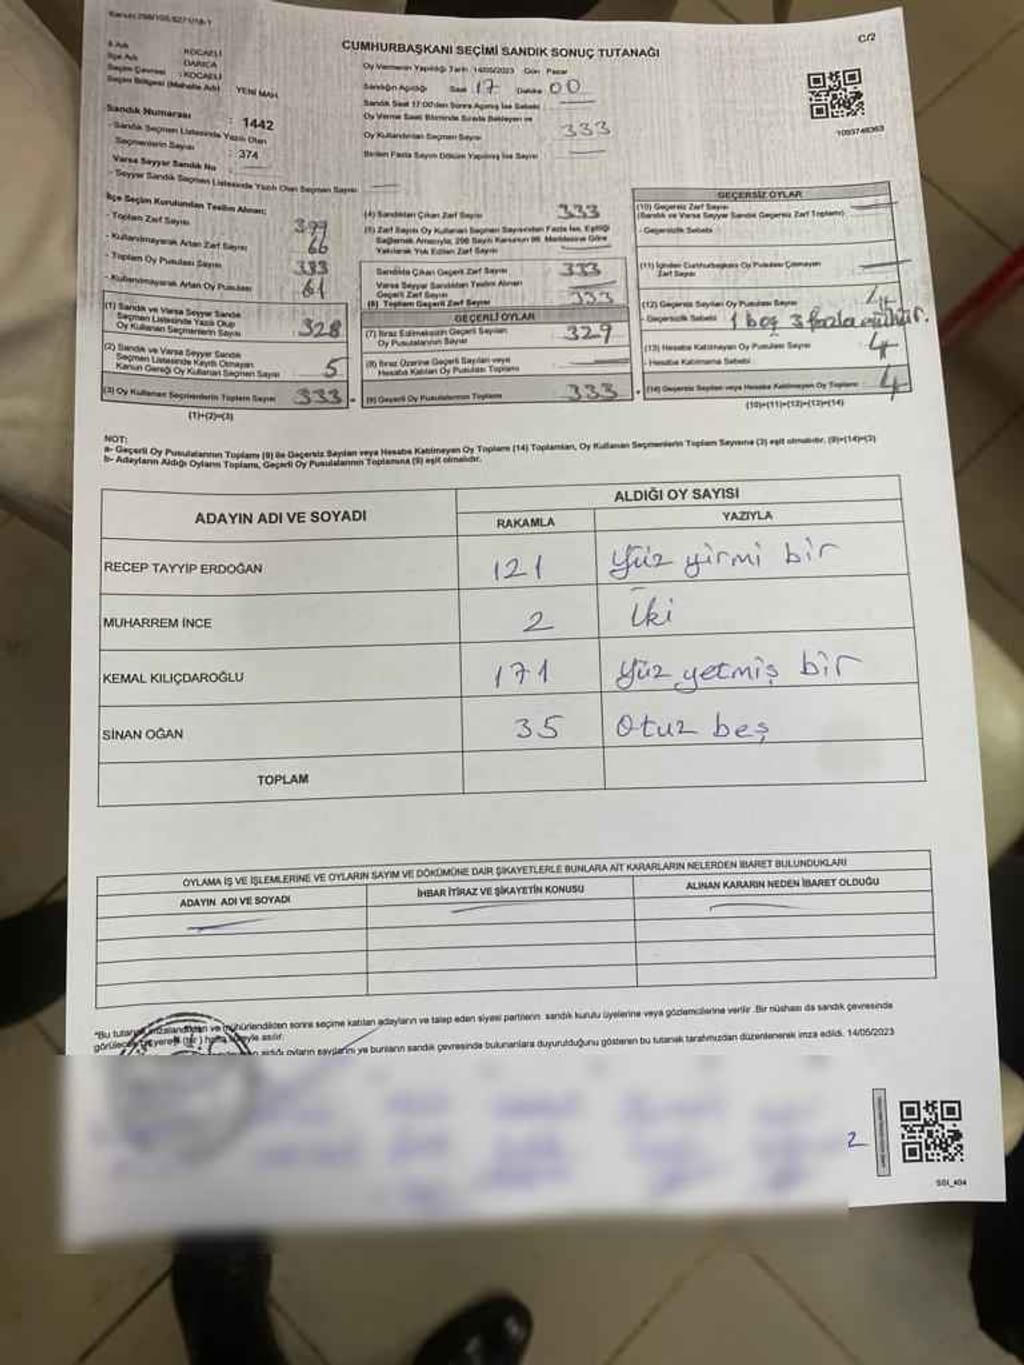 CUMHURBAŞKANI SEÇİMİ SANDIK SONUÇ TUTANAĞI
C/2
İl Adı : KOCAELİ
İlçe Adı : DARICA
Seçim Çevresi : KOCAELİ
Seçim Bölgesi (Mahalle Adı) YENİ MAH.
Oy Vermenin Yapıldığı Tarih :14/05/2023 Gün : Pazar
Sandığın Açıldığı Saat 17 Dakika 00
Sandık Saat 17:00'den Sonra Açılmış İse Sebebi
Oy Verme Saati Bitiminde Sırada Bekleyen ve
Oy Kullandırılan Seçmen Sayısı 333
Birden Fazla Sayım Döküm Yapılmış İse Sayısı
1093746363
Sandık Numarası : 1442
- Sandık Seçmen Listesinde Yazılı Olan
Seçmenlerin Sayısı : 374
Varsa Seyyar Sandık No
- Seyyar Sandık Seçmen Listesinde Yazılı Olan Seçmen Sayısı
İlçe Seçim Kurulundan Teslim Alınan;
- Toplam Zarf Sayısı 399
- Kullanılmayarak Artan Zarf Sayısı 66
- Toplam Oy Pusulası Sayısı 333
- Kullanılmayarak Artan Oy Pusulası 61
(1) Sandık ve Varsa Seyyar Sandık
Seçmen Listesinde Yazılı Olup
Oy Kullanan Seçmenlerin Sayısı 328
(2) Sandık ve Varsa Seyyar Sandık
Seçmen Listesinde Kayıtlı Olmayan
Kanun Gereği Oy Kullanan Seçmen Sayısı 5
(3) Oy Kullanan Seçmenlerin Toplam Sayısı 333
(1)+(2)=(3)
(4) Sandıktan Çıkan Zarf Sayısı 333
(5) Zarf Sayısı Oy Kullanan Seçmen Sayısından Fazla İse, Eşitliği
Sağlamak Amacıyla, 298 Sayılı Kanunun 98. Maddesine Göre
Yakılarak Yok Edilen Zarf Sayısı
Sandıkta Çıkan Geçerli Zarf Sayısı 333
Varsa Seyyar Sandıktan Teslim Alınan
Geçerli Zarf Sayısı
(6) Toplam Geçerli Zarf Sayısı 333
GEÇERLİ OYLAR
(7) İtiraz Edilmeksizin Geçerli Sayılan
Oy Pusulalarının Sayısı 329
(8) İtiraz Üzerine Geçerli Sayılan veya
Hesaba Katılan Oy Pusulası Toplamı
(9) Geçerli Oy Pusulalarının Toplamı 333
GEÇERSİZ OYLAR
(10) Geçersiz Zarf Sayısı
(Sandık ve Varsa Seyyar Sandık Geçersiz Zarf Toplamı)
- Geçersizlik Sebebi
(11) İçinden Cumhurbaşkanı Oy Pusulası Çıkmayan
Zarf Sayısı
(12) Geçersiz Sayılan Oy Pusulası Sayısı 4
- Geçersizlik Sebebi 1 boş 3 fazla mühür.
(13) Hesaba Katılmayan Oy Pusulası Sayısı 4
- Hesaba Katılmama Sebebi
(14) Geçersiz Sayılan veya Hesaba Katılmayan Oy Toplamı 4
(10)+(11)+(12)+(13)=(14)
NOT:
a- Geçerli Oy Pusulalarının Toplamı (9) ile Geçersiz Sayılan veya Hesaba Katılmayan Oy Toplamı (14) Toplamları, Oy Kullanan Seçmenlerin Toplam Sayısına (3) eşit olmalıdır. (9)+(14)=(3)
b- Adayların Aldığı Oyların Toplamı, Geçerli Oy Pusulalarının Toplamına (9) eşit olmalıdır.
ADAYIN ADI VE SOYADI
ALDIĞI OY SAYISI
RAKAMLA YAZIYLA
RECEP TAYYİP ERDOĞAN 121 Yüz yirmi bir
MUHARREM İNCE 2 İki
KEMAL KILIÇDAROĞLU 171 Yüz yetmiş bir
SİNAN OĞAN 35 Otuz beş
TOPLAM
OYLAMA İŞ VE İŞLEMLERİNE VE OYLARIN SAYIM VE DÖKÜMÜNE DAİR ŞİKAYETLERLE BUNLARA AİT KARARLARIN NELERDEN İBARET BULUNDUKLARI
ADAYIN ADI VE SOYADI İHBAR İTİRAZ VE ŞİKAYETİN KONUSU ALINAN KARARIN NEDEN İBARET OLDUĞU
*Bu tutanak imzalandıktan ve mühürlendikten sonra seçime katılan adayların ve talep eden siyasi partilerin sandık kurulu üyelerine veya gözlemcilerine verilir .Bir nüshası da sandık çevresinde
görülecek bir yere asılır.
aldığı oyların sayılarını ve bunların sandık çevresinde bulunanlara duyurulduğunu gösteren bu tutanak tarafımızdan düzenlenerek imza edildi. 14/05/2023
2
SSI_404